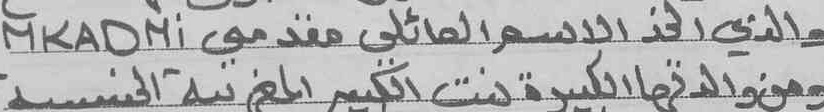 والذي اتخذ الاسم العائلي مقدمي MKADMi
ومن والدتها الكبيرة بنت الكبير المغربية الجنسية